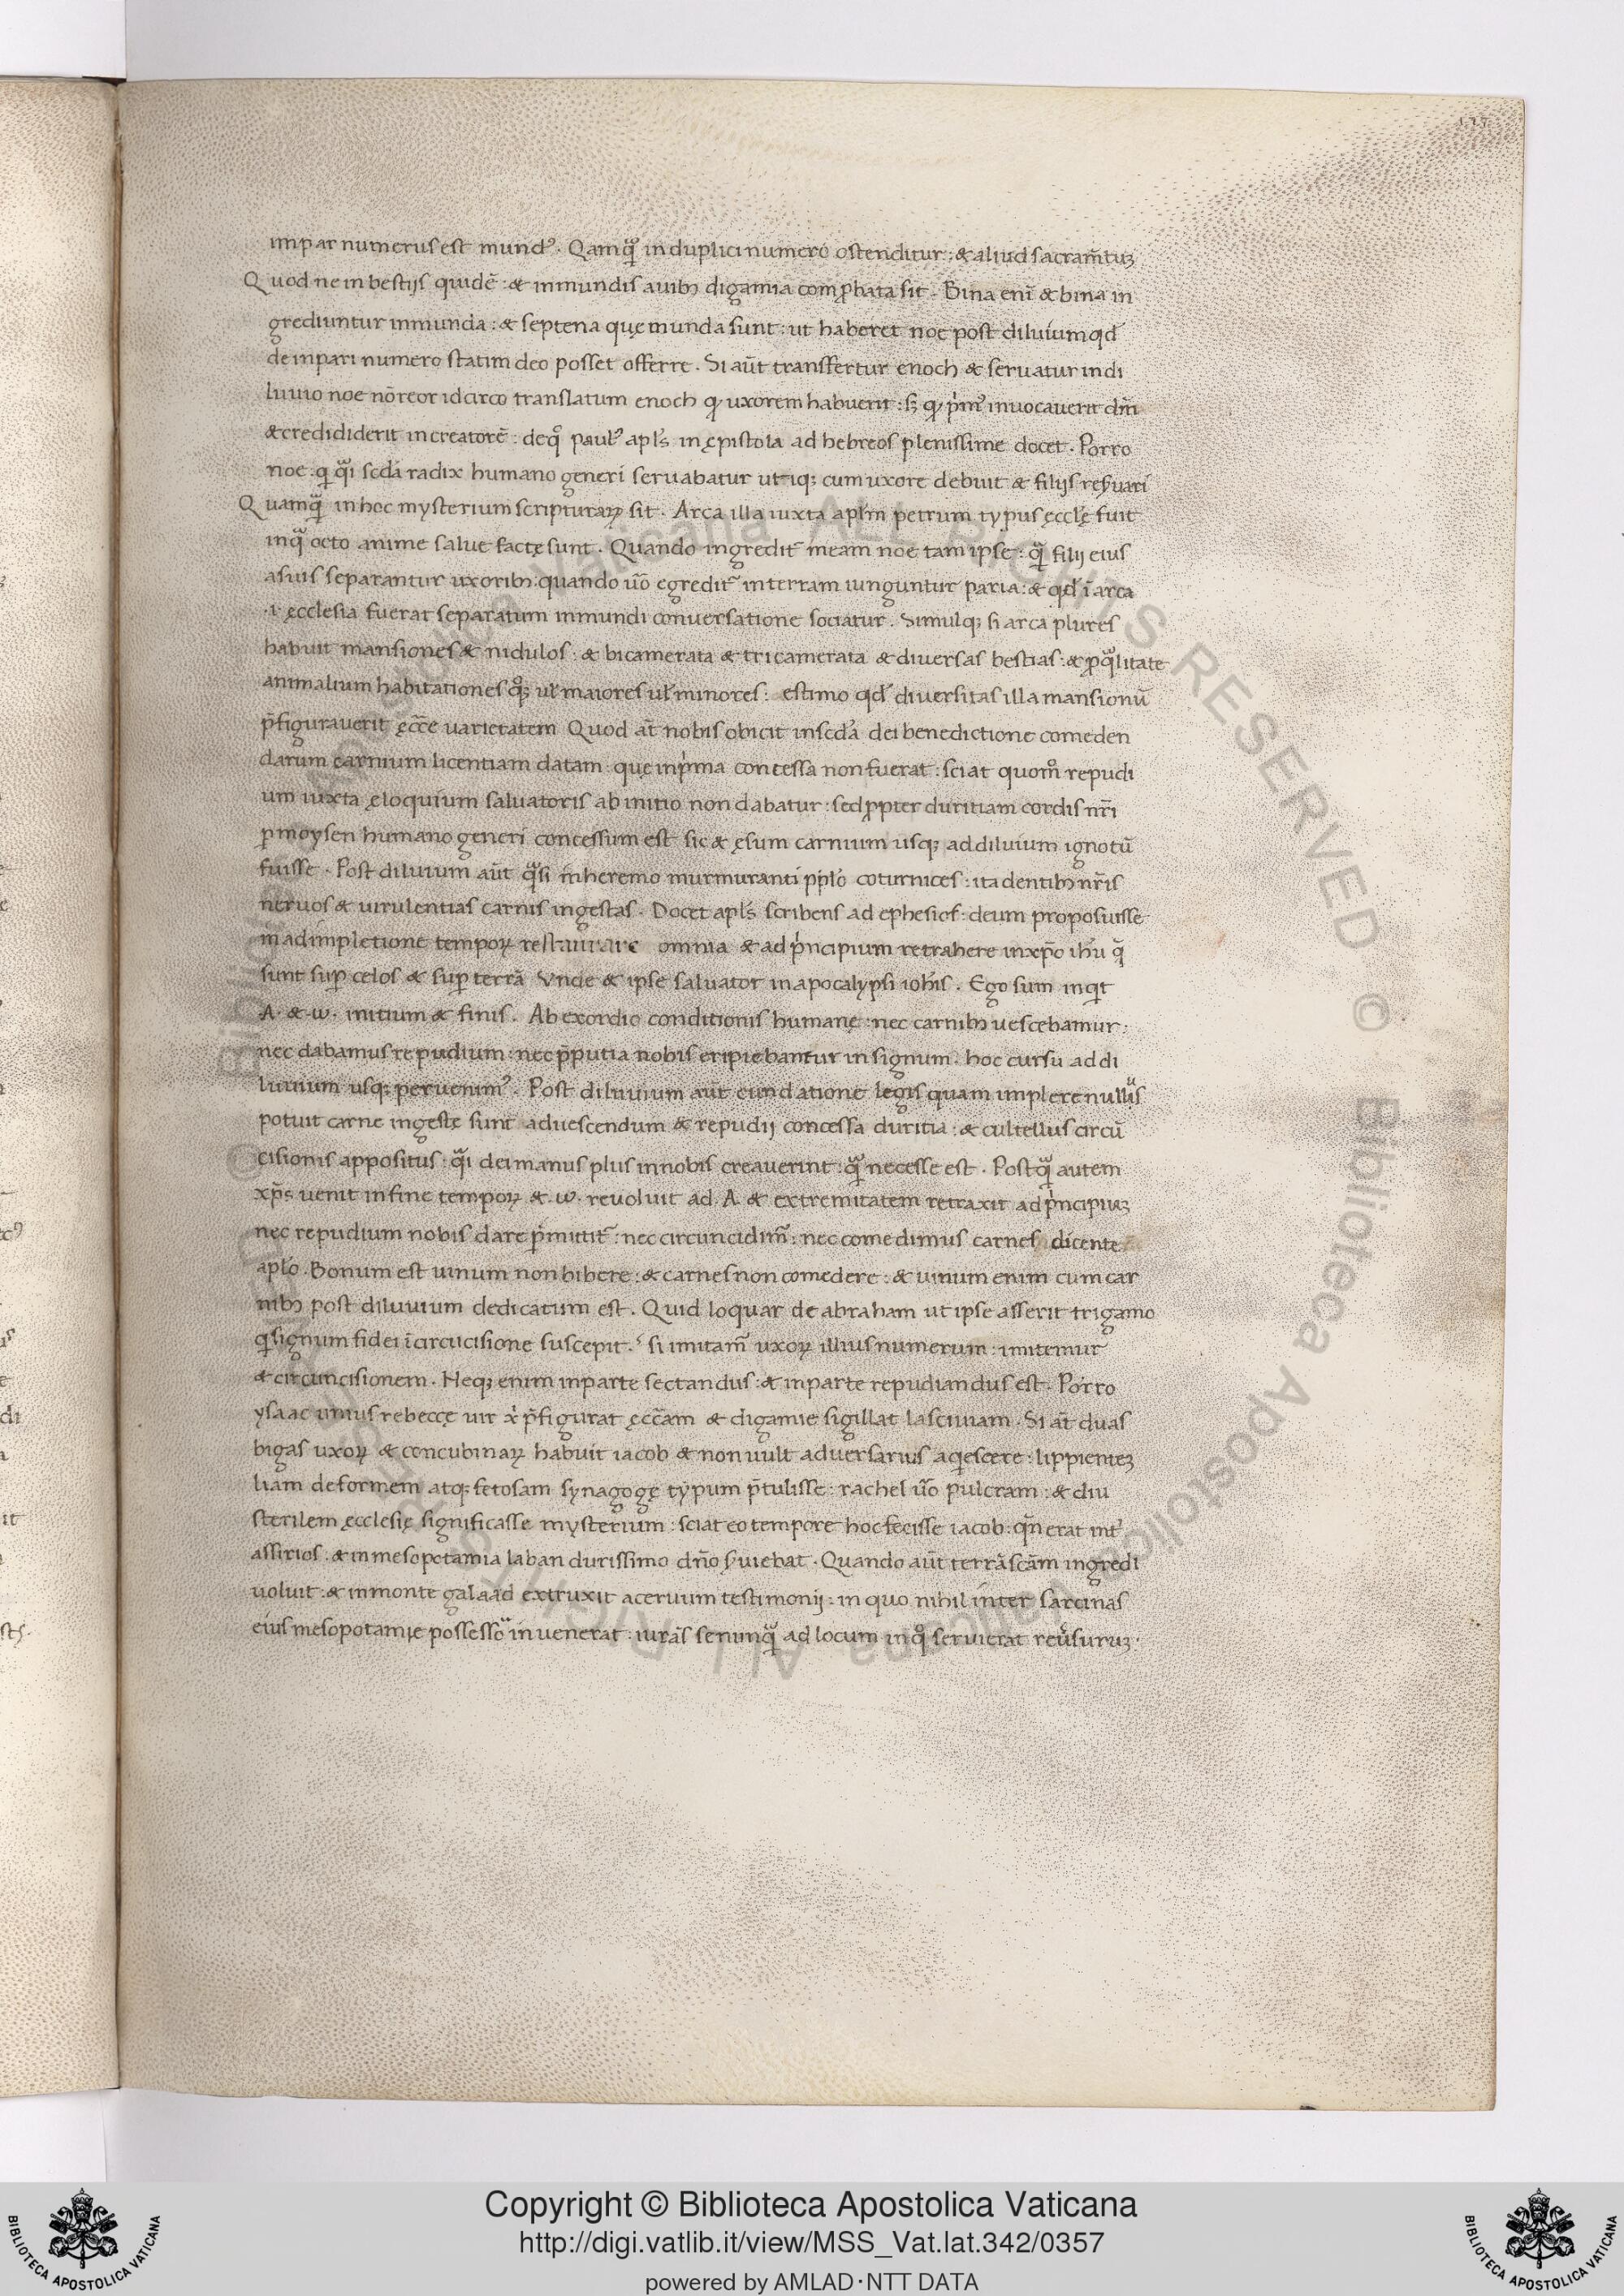 impar numerus est mund⁹. Qamqͣ in duplici numero ostenditur: & aliud sacram̄tuꝫ
Quod ne in bestijs quidē: & inmundis auibꝫ digamia comꝓbata sit. Bina enī & bina in
grediuntur inmunda: & septena quę munda sunt: ut haberet noe post diluuium qd̕
de inpari numero statim deo posset offerre. Si aūt transfertur enoch & seruatur in di
luuio noe nō reor idcirco translatum enoch ꝙ uxorem habuerit: sꝫ ꝙ p̍m⁹ inuocauerit dm̄
& credididerit in creatorē: deqͦ paul⁹ apl̕s in ępistola ad hebreos plenissime docet. Porro
noe: q qͣi scd̕a radix humano generi seruabatur utiqꝫ cum uxore debuit & filijs res̕uari
Quamqͣ in hoc mysterium scripturaꝝ sit. Arca illa iuxta apl̕m petrum typus ęccl̕ę fuit
inqͣ octo anime salue factę sunt. Quando ingredit̄ meam noe tam ipse: qͣ filij eius
a suis separantur uxoribꝫ: quando uō egredit̄ in terram iunguntur paria: & qd̕ ī arca
.i. ęcclesia fuerat separatum inmundi conuersatione sociatur. Simulqꝫ si arca plures
habuit mansiones & nidulos: & bicamerata & tricamerata & diuersas bestias: & ꝓ qͣlitate
animalium habitationes qͦꝫ ul̕ maiores ul̕ minores: estimo qd̕ diuersitas illa mansionū
p̄figurauerit ęcc̄e uarietatem Quod at̄ nobis obicit in scd̕a dei benedictione comeden
darum carnium licentiam datam: quę in p̍ma concessa non fuerat: sciat quomͦ repudi
um iuxta ęloquium saluatoris ab initio non dabatur: sed ꝓpter duritiam cordis nr̄i
ꝑ moysen humano generi concessum est sic & ęsum carnium usqꝫ ad diluuium ignotū
fuisse. Post diluuium aūt qͣsi in heremo murmuranti ppl̕o coturnices: ita dentibꝫ nr̄is
neruos & uirulentias carnis ingestas. Docet apl̕s scribens ad ephesios: deum proposuisse
in adimpletione tempoꝝ restaurare omnia & ad p̍ncipium retrahere in xp̄o ih̄u q̄
sunt suꝑ celos & suꝑ terrā Vnde & ipse saluator in apocalypsi ioh̄is. Ego sum inqͥt
A. & .ω. initium & finis. Ab exordio conditionis humanę: nec carnibꝫ uescebamur:
nec dabamus repudium: nec p̄putia nobis eripiebantur in signum. hoc cursu ad di
luuium usqꝫ peruenim⁹. Post diluuium aūt cum datione legis quam implere nullus
potuit carne ingestę sunt ad uescendum & repudij concessa duritia: & cultellus circū
cisionis appositus: qͣi dei manus plus in nobis creauerint: qͣ necesse est. Postqͣ autem
xp̄s uenit in fine tempoꝝ & .ω. reuoluit ad .A. & extremitatem retraxit ad p̍ncipiuꝫ
nec repudium nobis dare ꝑmittit̄: nec circuncidim̄: nec comedimus carnes dicente
apl̕o. Bonum est uinum non bibere: & carnes non comedere: & uinum enim cum car
nibꝫ post diluuium dedicatum est. Quid loquar de abraham ut ipse asserit trigamo
q signum fidei ī circūcisione suscepit. si imitam̄ uxoꝝ illius numerum: imitemur
& circuncisionem. Neqꝫ enim in parte sectandus: & in parte repudiandus est. Porro
ysaac unius rebeccę uir xͥ p̄figurat ęcc̄am & digamię sigillat lasciuiam. Si at̄ duas
bigas uxoꝝ & concubinaꝝ habuit iacob & non uult aduersarius aqͥescere: lippienteꝫ
liam deformem atqꝫ fetosam synagogę typum p̄tulisse: rachel uō pulcram: & diu
sterilem ęcclesię significasse mysterium: sciat eo tempore hoc fecisse iacob: qn̄ erat int̕
assirios: & in mesopotamia laban durissimo dn̄o s̕uiebat. Quando aūt terrā scām ingredi
uoluit: & in monte galaad extruxit aceruum testimonij: in quo nihil inter sarcinas
eius mesopotamię possessoͬ inuenerat: iurās se nunqͣ ad locum inqͦ seruierat reu̕suruꝫ.
Copyright © Biblioteca Apostolica Vaticana
http://digi.vatlib.it/view/MSS_Vat.lat.342/0357
powered by AMLAD·NTT DATA